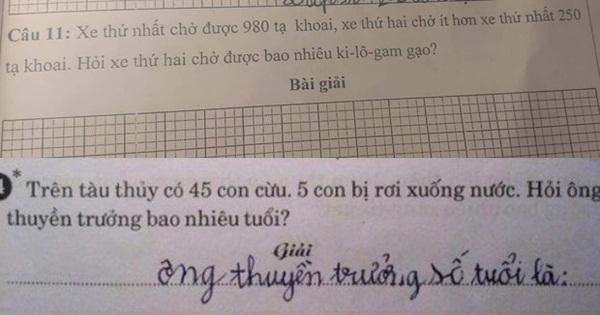 Câu 11: Xe thứ nhất chở được 980 tạ khoai, xe thứ hai chở ít hơn xe thứ nhất 250
tạ khoai. Hỏi xe thứ hai chở được bao nhiêu ki-lô-gam gạo?
Bài giải
* Trên tàu thủy có 45 con cừu. 5 con bị rơi xuống nước. Hỏi ông
thuyền trưởng bao nhiêu tuổi?
Giải
ông thuyền trưởng số tuổi là: